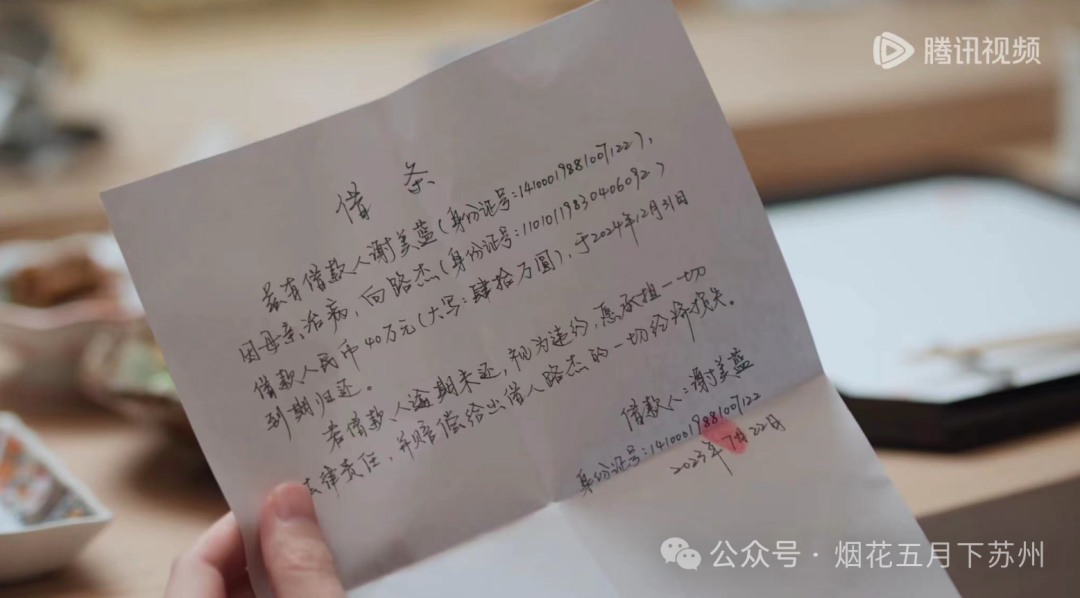 腾讯视频
借 条
兹有借款人谢美蓝(身份证号:14100019881007122),
因母亲治病,向路杰(身份证号:11010119830406092)
借款人民币40万元(大写:肆拾万圆),于2024年12月31日
到期归还。
若借款人逾期未还,视为违约,愿承担一切
法律责任,并赔偿给出借人路杰的一切经济损失。
借款人:谢美蓝
身份证号:14100019881007122
2023年7月22日
公众号·烟花五月下苏州